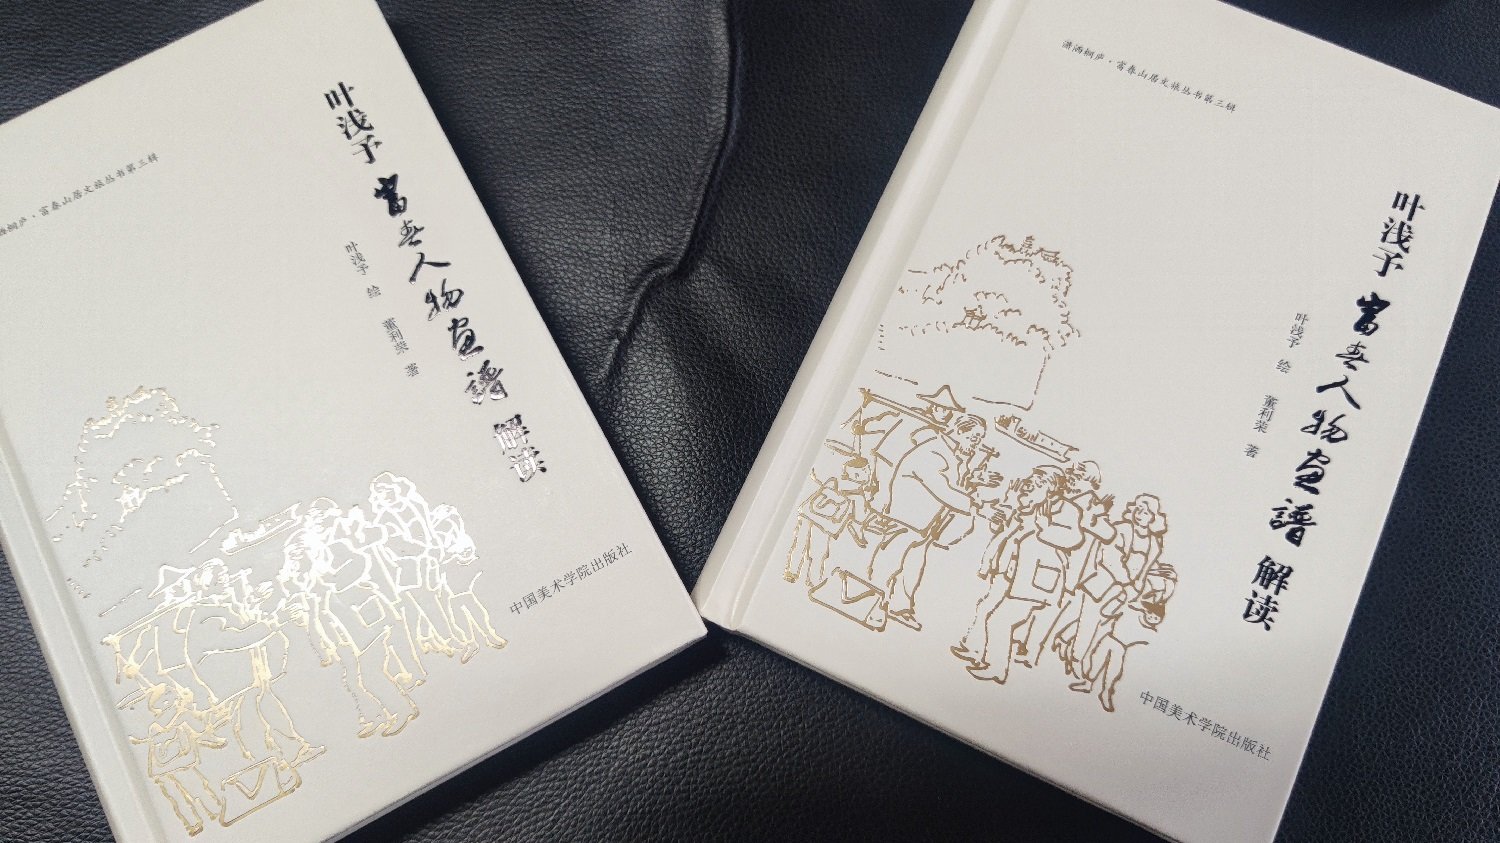 洒桐庐·富春山居文旅丛书第三辑
叶浅予
富春人物画谱
解读
叶浅予 绘 董利荣 著
中国美术学院出版社
潇洒桐庐·富春山居文旅丛书第三辑
叶浅予
富春人物画谱
解读
叶浅予 绘 董利荣 著
中国美术学院出版社